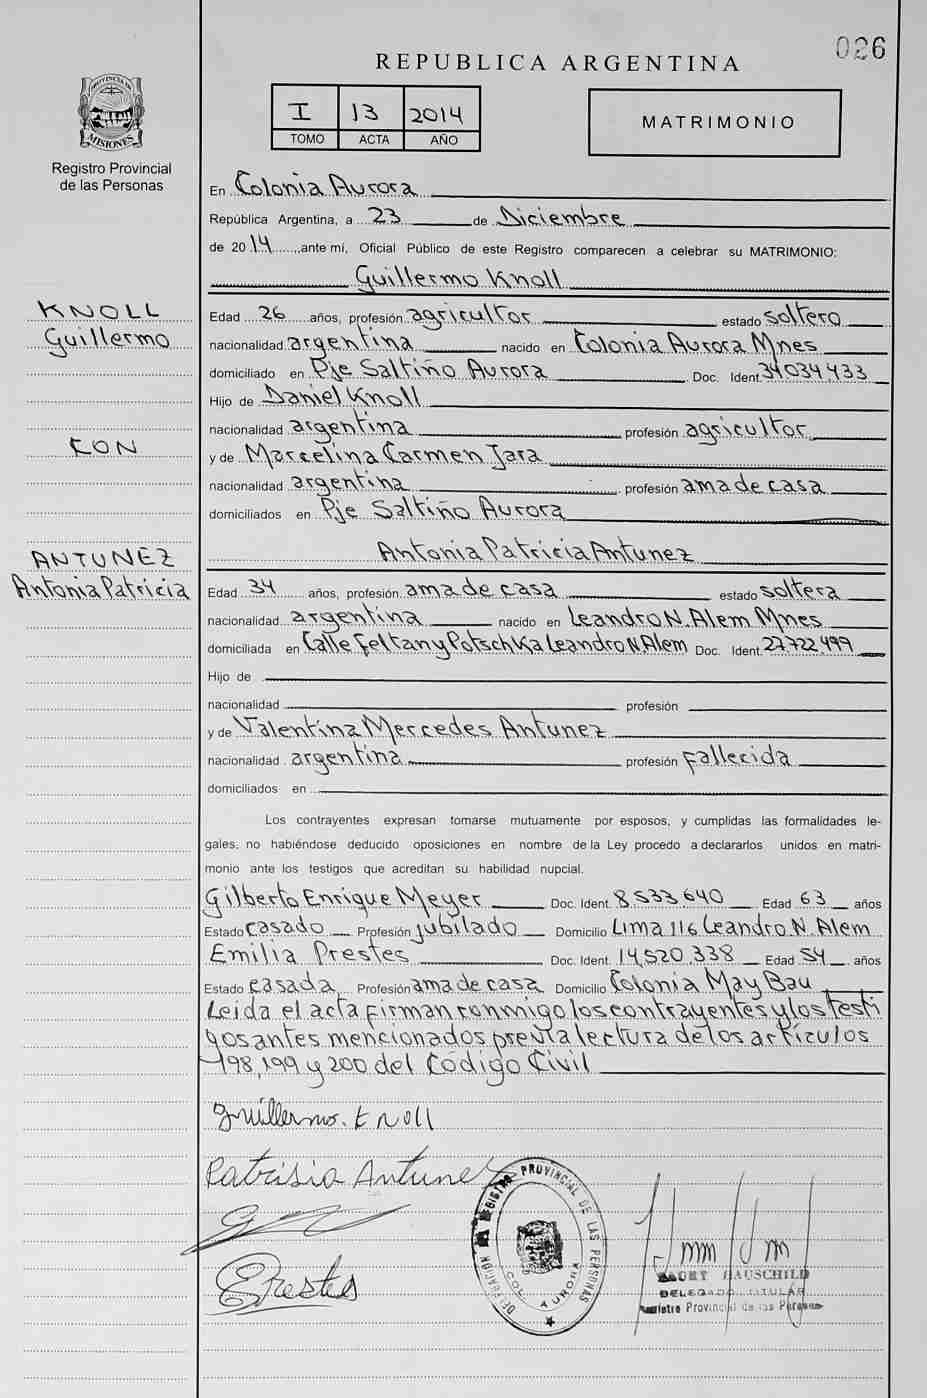 026
REPUBLICA ARGENTINA
PROVINCIA DE
MISIONES
Registro Provincial
de las Personas
I 13 2014
TOMO ACTA AÑO
MATRIMONIO
En Colonia Aurora
República Argentina, a 23 de Diciembre
de 2014, ante mí, Oficial Público de este Registro comparecen a celebrar su MATRIMONIO:
Guillermo Knoll
KNOLL
Guillermo
CON
ANTUNEZ
Antonia Patricia
Edad 26 años, profesión agricultor estado soltero
nacionalidad argentina nacido en Colonia Aurora Mnes
domiciliado en Pje Saltiño Aurora Doc. Ident. 34034,433
Hijo de Daniel Knoll
nacionalidad argentina profesión agricultor
y de Marcelina Carmen Jara
nacionalidad argentina profesión ama de casa
domiciliados en Pje Saltiño Aurora
Antonia Patricia Antunez
Edad 34 años, profesión ama de casa estado soltera
nacionalidad argentina nacido en Leandro N. Alem Mnes
domiciliada en Calle Feltan y Potschka Leandro N Alem Doc. Ident. 27.722.499
Hijo de
nacionalidad profesión
y de Valentina Mercedes Antunez
nacionalidad argentina profesión fallecida
domiciliados en
Los contrayentes expresan tomarse mutuamente por esposos, y cumplidas las formalidades le-
gales, no habiéndose deducido oposiciones en nombre de la Ley procedo a declararlos unidos en matri-
monio ante los testigos que acreditan su habilidad nupcial.
Gilberto Enrique Meyer Doc. Ident. 8.533.640 Edad 63 años
Estado casado Profesión jubilado Domicilio Lima 116 Leandro N. Alem
Emilia Prestes Doc. Ident. 14,520,338 Edad 54 años
Estado casada Profesión ama de casa Domicilio Colonia May Bau
Leida el acta firman conmigo los contrayentes y los testi
gos antes mencionados previa lectura de los artículos
198, 199 y 200 del Código Civil
Guillermo. Knoll
Patrisia Antunez
EPrestes
DELEGACION REGISTRO PROVINCIAL DE LAS PERSONAS
COL. AURORA
HAUSCHILD
DELEGADO TITULAR
Registro Provincial de las Personas